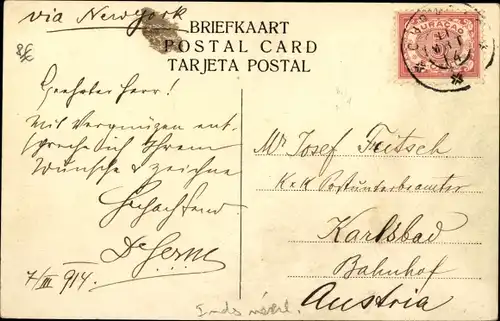 via New York
BRIEFKAART
POSTAL CARD
TARJETA POSTAL
CURAÇAO
Geehrter Herr!
Mit Vergnügen ent-
spreche ich Ihrem
Wunsche & zeichne
Hochachtend
7/III 914.
Mr Josef Fritsch
K.K Postunterbeamter
Karlsbad
Bahnhof
Austria